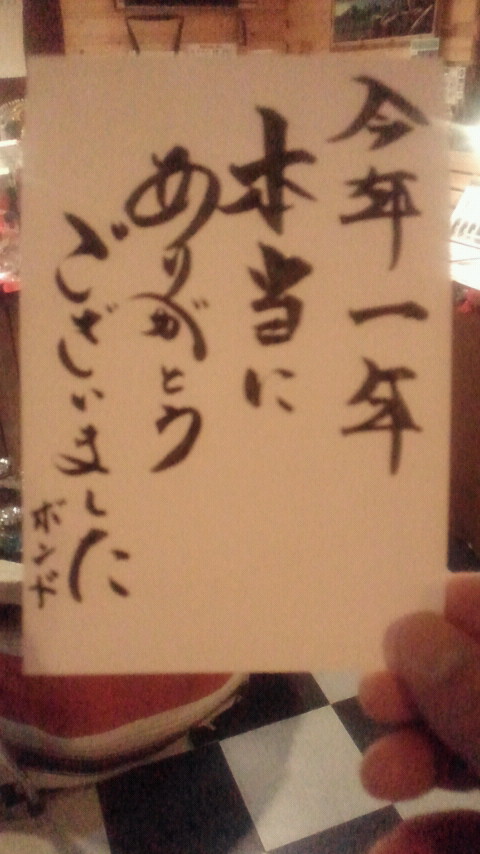 今年一年
本当に
ありがとう
ございました
ボンド